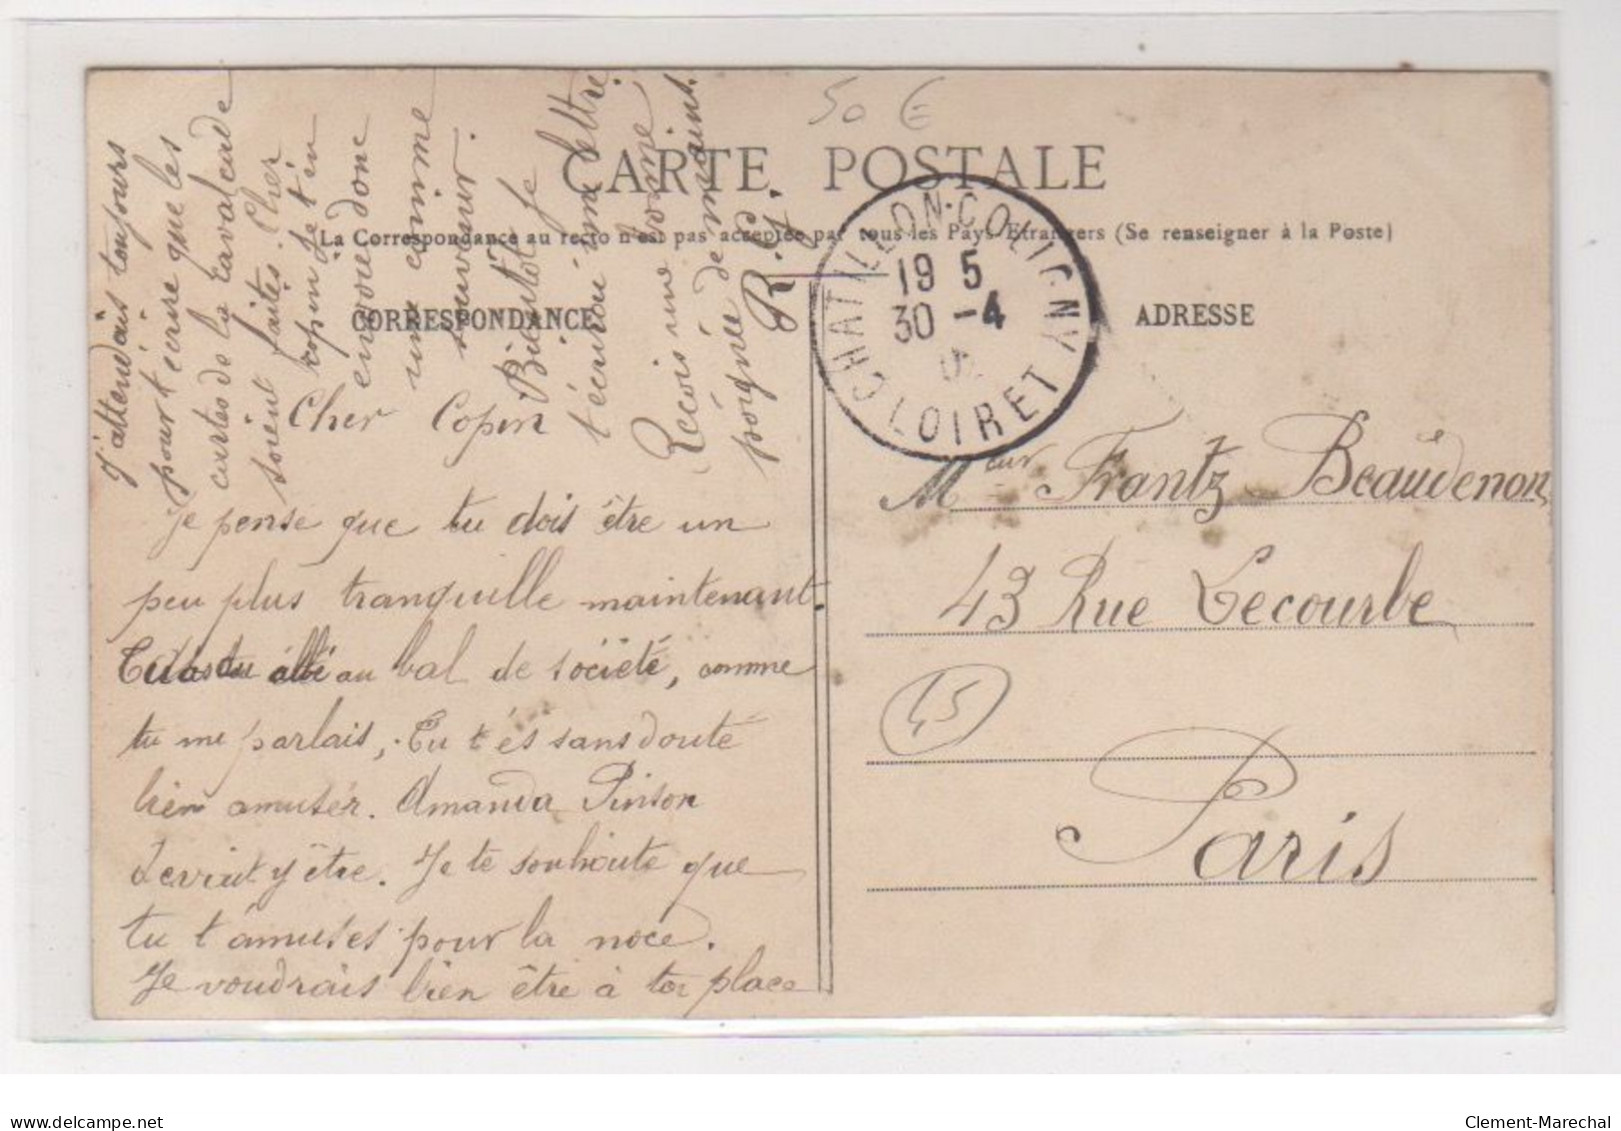 50 €
CARTE POSTALE
La Correspondance au recto n'est pas acceptée par tous les Pays Etrangers (Se renseigner à la Poste)
CORRESPONDANCE
ADRESSE
CHATILLON-COLIGNY
19 5
30 -4
LOIRET
Cher Copin
Je pense que tu dois être un
peu plus tranquille maintenant.
au bal de société, comme
tu me parlais, Tu t'és sans doute
bien amusér. Amanda Pinson
devait y être. Je te souhaite que
tu t'amuses pour la noce.
Je voudrais bien être à toi place
j'attendais toujours
pour t'écrire que les
cartes de la cavalcade
soient faites. Cher
copin je t'en
envoie donc
une comme
souvenir.
Bientôt je
t'écrirai une lettre
Recois une bonne
poignée de maint.
Mr Frantz Beaudenon
43 Rue Lecourbe
45
Paris
Clement-Marechal
www.delcampe.net